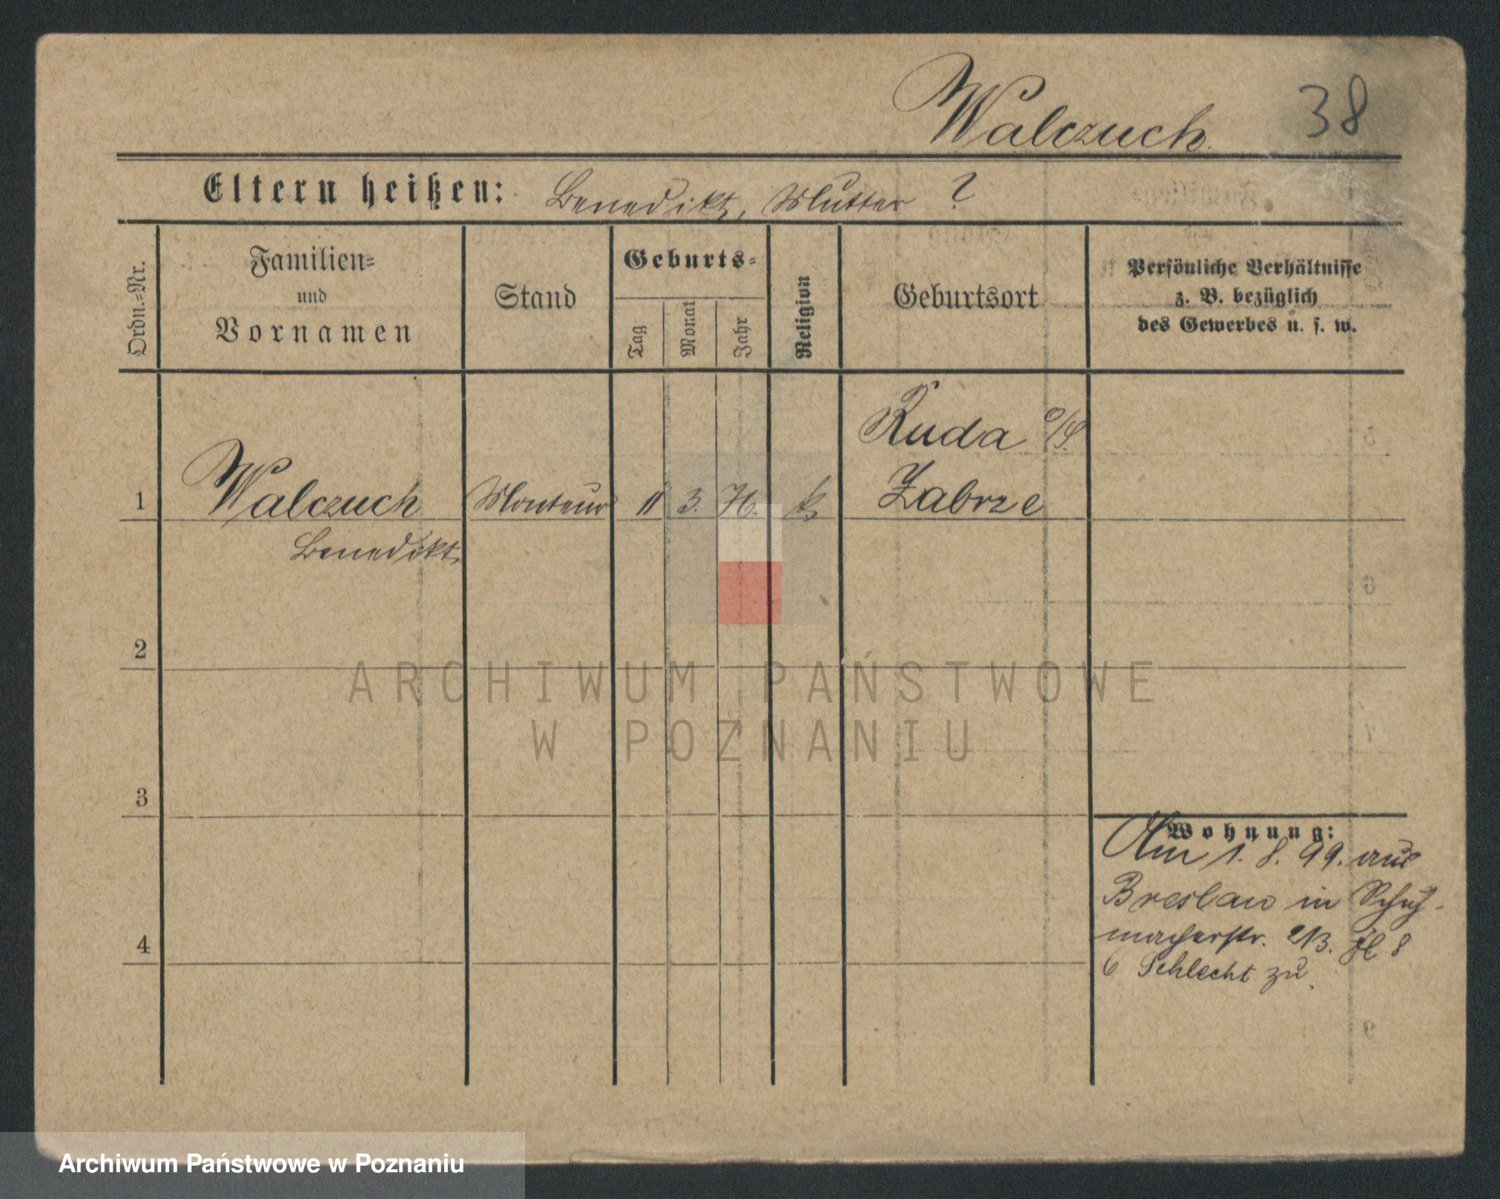 Walczuch
38
Eltern heißen: Benedikt, Mutter ?
Ordn.=Nr.
Familien=
und
Vornamen
Stand
Geburts=
Tag
Monat
Jahr
Religion
Geburtsort
Persönliche Verhältnisse
z. B. bezüglich
des Gewerbes u. s. w.
Ruda O/S.
1 Walczuch Monteur 11 3. 76. k. Zabrze
Benedikt
2
3
4
Wohnung:
Am 1. 8. 99. aus
Breslau in Schuh-
macherstr. 2/3. H 8
b Schlecht zu.
ARCHIWUM PAŃSTWOWE
W POZNANIU
Archiwum Państwowe w Poznaniu